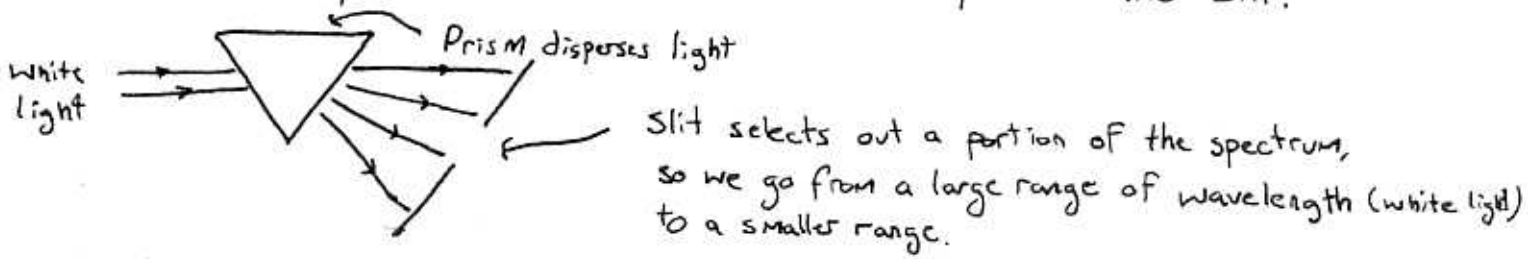 Prism disperses light
white
light
Slit selects out a portion of the spectrum,
so we go from a large range of wavelength (white light)
to a smaller range.